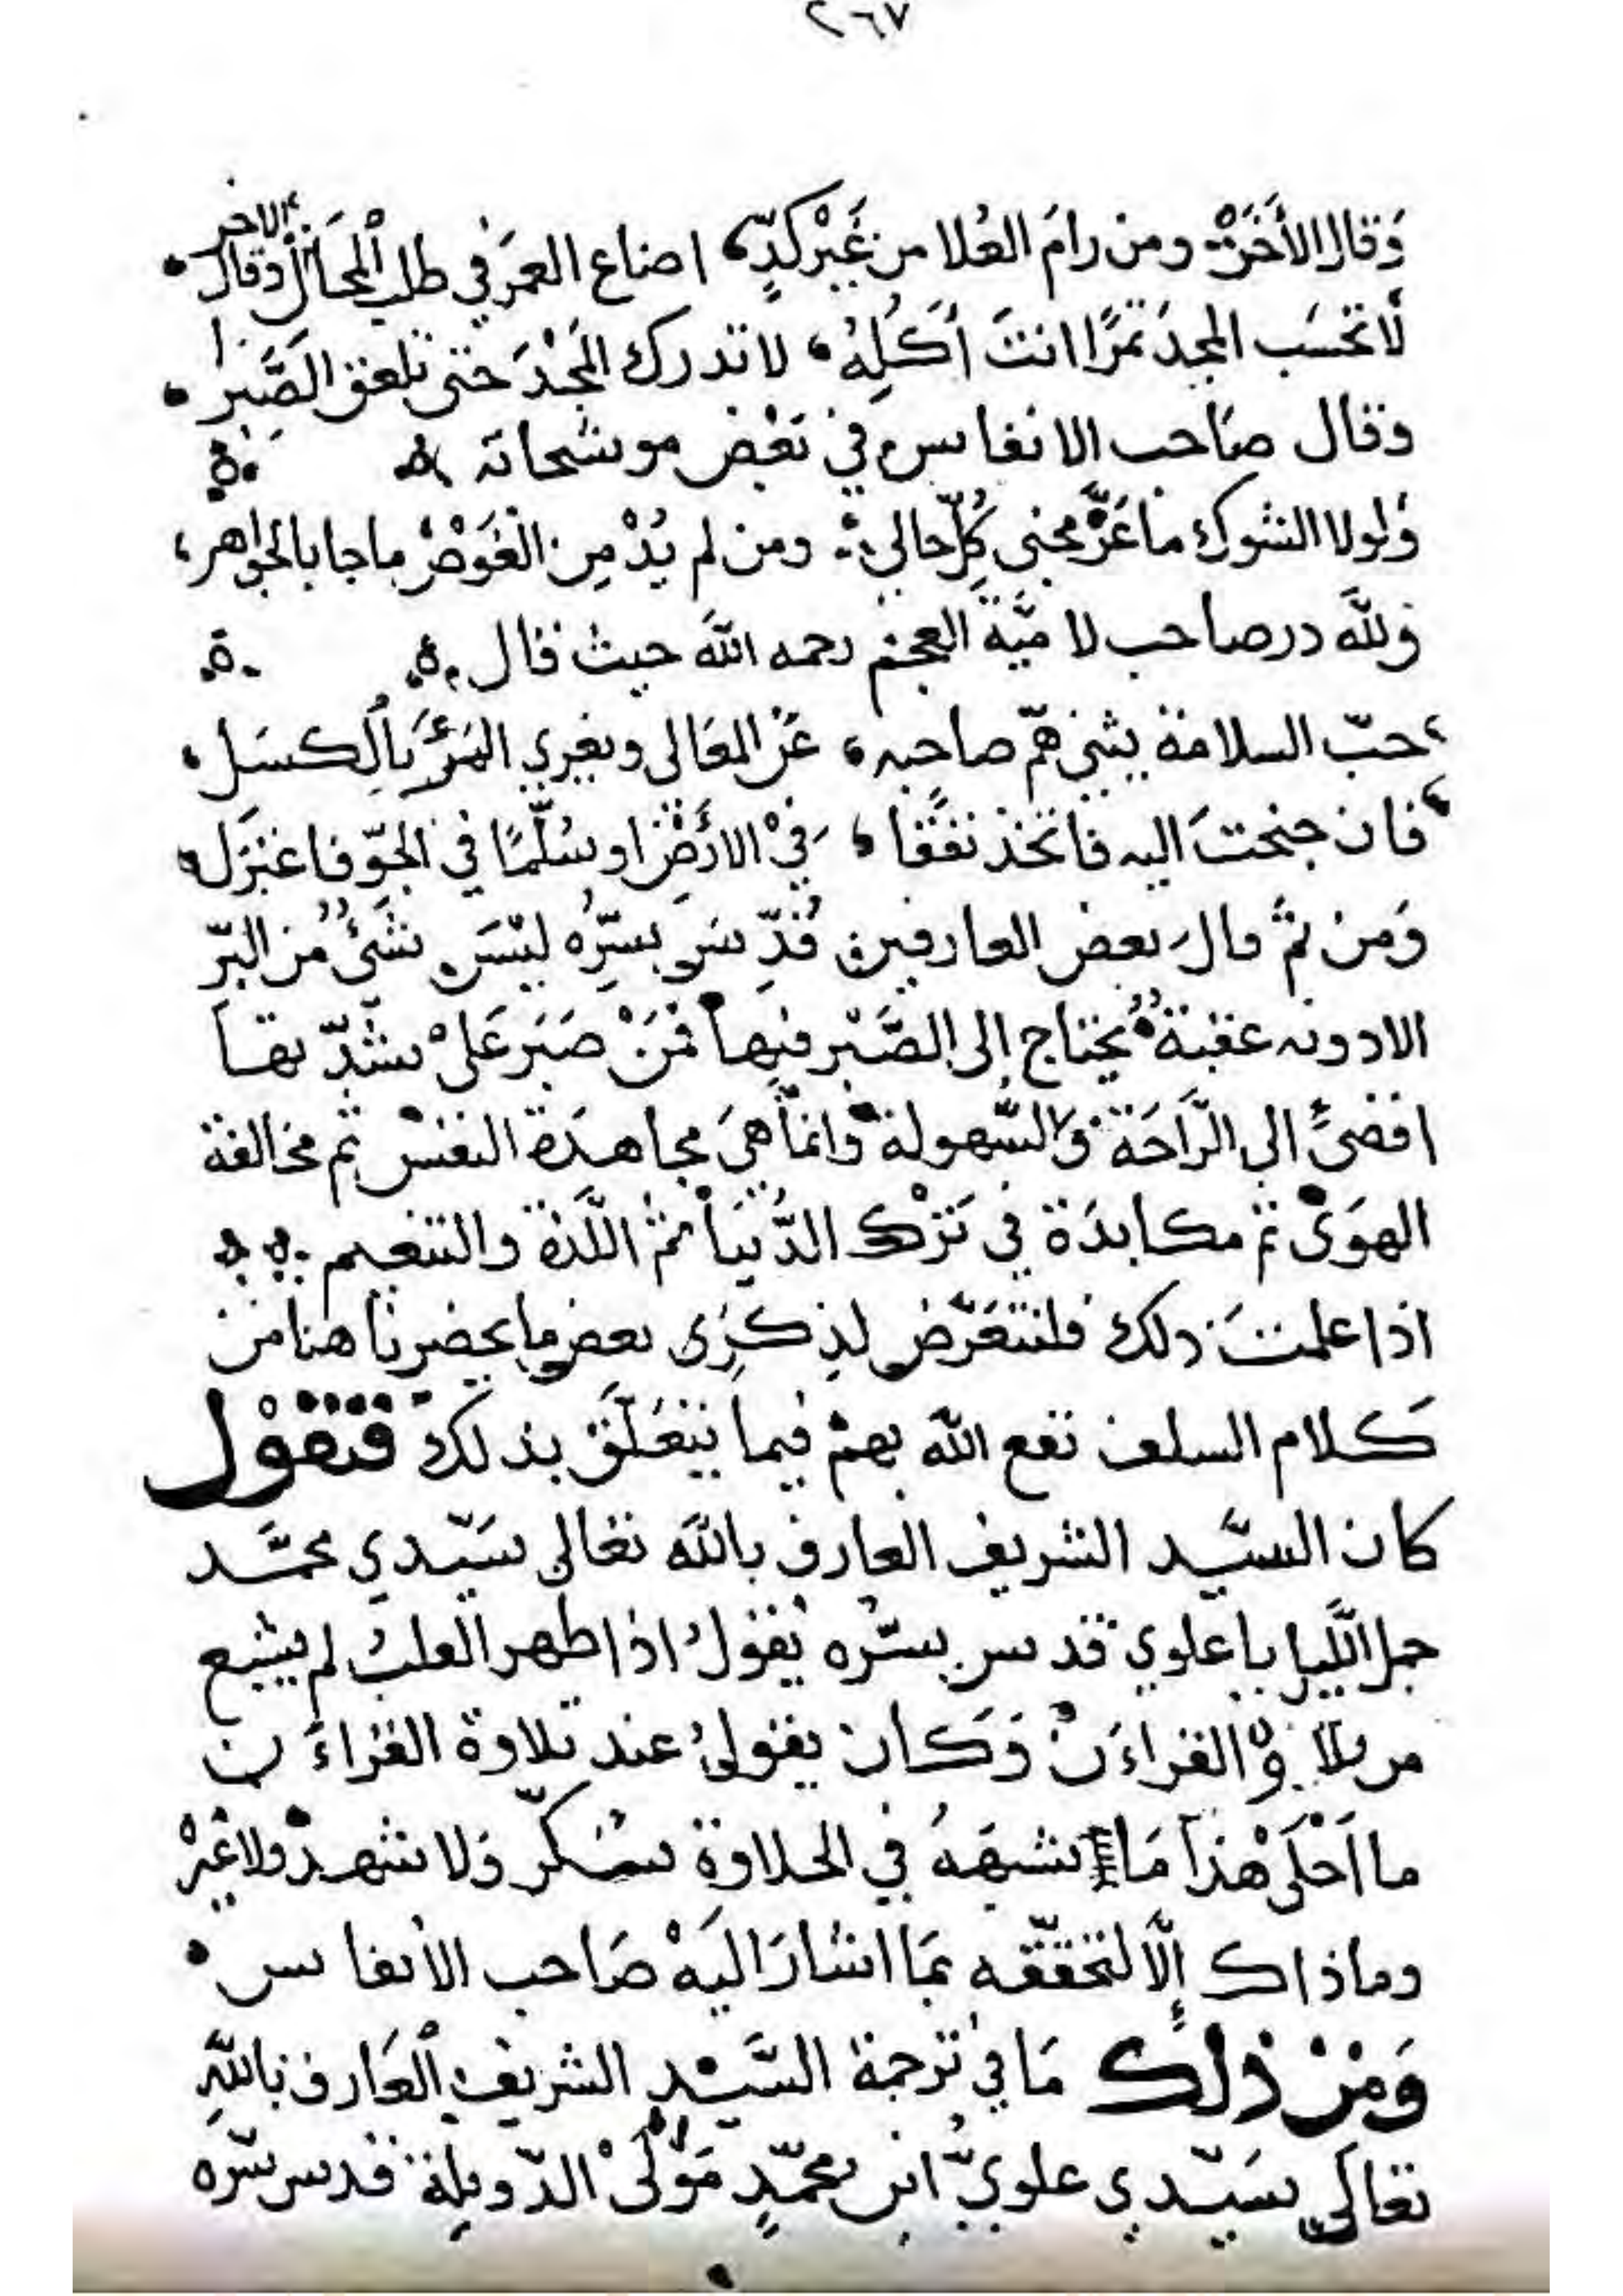 ٢٦٧
وَقال الأَخَرْ ومن رامَ العُلا من غَيْر كدٍّ، اضاع العمَر في طلب المحَال وقال الاخر
لَا تحسَب المجدَ تمرًا انتَ أكلُهُ، لا تدرك المجْدَ حتى تلعق الصَّبِرا
وقال صَاحب الانفاس في بَعْض موشحاته
وَلولا الشوك ما عَزَّ مجنى كُلّ حالي ومن لم يُدْمِن الغَوْصْ ما جا بالجواهر،
ولله در صاحب لا ميَّة العجم رحمه الله حيث قال
حبّ السلامة يثني همّ صاحبه، عَنْ المعَالى ويغري المَرْءَ بالكسَل،
فان جنحتَ اليه فاتخذ نفقًا، في الأرْض او سُلّمًا في الجوّ فاعتزَل
وَمن ثمَّ قالَ بعض العارفين قُدِّسَ سِرُّه ليْسَ شئٌ من البرّ
الا دونه عقبَةٌ يُحتاج إلى الصَّبْر فيها فمَنْ صَبَر عَلىْ شدّتها
افضىَ الى الرَّاحَة والسُّهولة وانمَا هيَ مجاهدَة النفسْ ثم مخالفة
الهوَىْ ثمّ مكابدَة في تَرْك الدُّنيَا ثمّ اللَّذة والتنعيم
اذا علمتَ ذلك فلنتعَرَّض لذِكرَى بعض ما يحضرنا هنا من
كَلام السلف نفع الله بهمْ فيما يتعَلّق بذلك فنقوْل
كان السيَّد الشريف العارف بالله تعَالى سَيّدي محمَّد
جمل الّليل باعلوي قدس سرّه يقولُ اذا طهر القلبُ لم يشبع
من تلاوة القراءَنْ وَكان يقولُ عند تلاوة القراءَن
ما اَحْلَىْ هَذا مَا يشبهَهُ في الحلاوة سُكّر وَلا شهدْ ولا غيْر
وماذاك إلَّا لتحَقّقه بمَا اشارَ اليَهْ صَاحب الأنفاس
وَمنْ ذلك مَا في ترجمة السَّيّد الشريف العَارف باللّهِ
تعَالى سَيّدي علويّ ابن محمّدٍ مَوْلَىْ الدّويلة قدس سّره